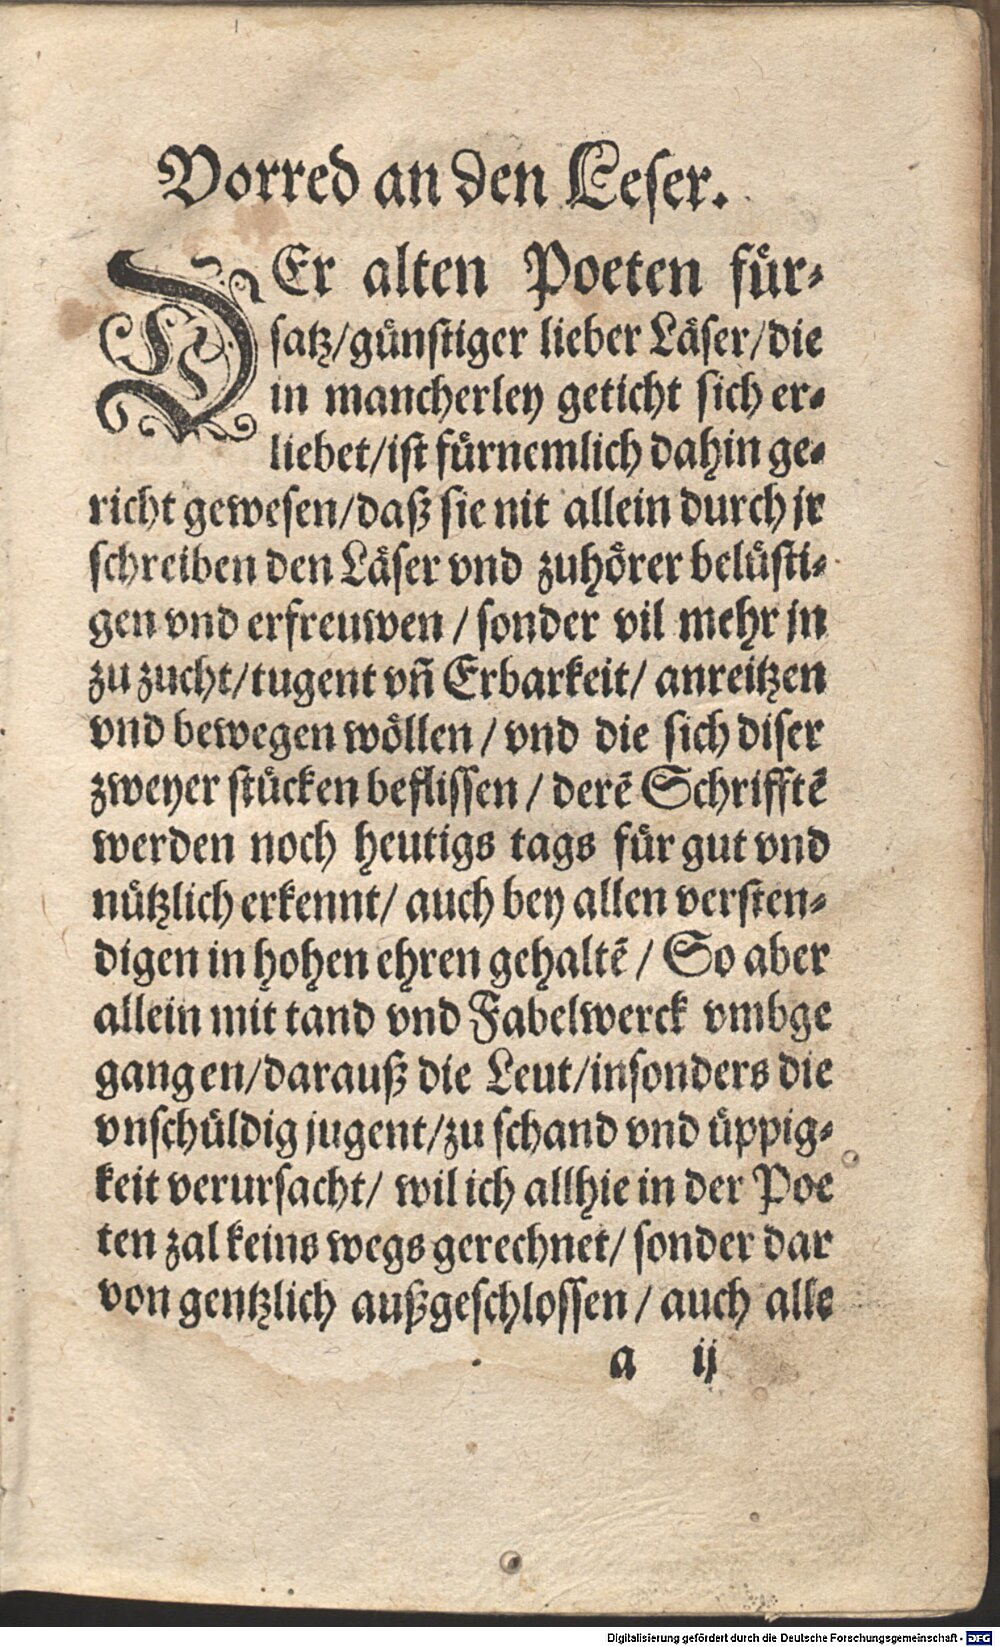 Vorred an den Leser.
DEr alten Poeten fuͤr-
satz/guͤnstiger lieber Laͤser/die
in mancherley geticht sich er-
liebet/ist fuͤrnemlich dahin ge-
richt gewesen/daß sie nit allein durch jr
schreiben den Laͤser vnd zuhoͤrer beluͤsti-
gen vnd erfreuwen / sonder vil mehr jn
zu zucht/tugent vñ Erbarkeit/ anreitzen
vnd bewegen woͤllen / vnd die sich diser
zweyer stuͤcken beflissen / derẽ Schrifftẽ
werden noch heutigs tags fuͤr gut vnd
nuͤtzlich erkennt/ auch bey allen versten-
digen in hohen ehren gehaltẽ / So aber
allein mit tand vnd Fabelwerck vmbge
gangen/darauß die Leut/insonders die
vnschuͤldig jugent/zu schand vnd uͤppig-
keit verursacht/ wil ich allhie in der Poe
ten zal keins wegs gerechnet/ sonder dar
von gentzlich außgeschlossen / auch alle
a ij
Digitalisierung gefördert durch die Deutsche Forschungsgemeinschaft - DFG